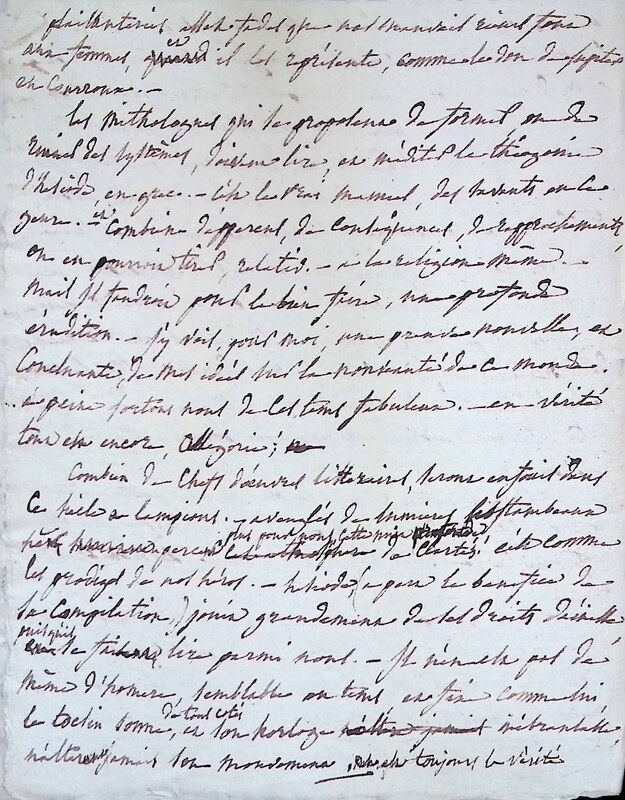 plaisanteries, allah fades que nos mauvais
aux femmes, quand il les représente, comme le don de Jupiter
en Courroux. —
Les Mithologues qui se proposent de former, ou de
des systèmes, doivent lire, et méditer la théogonie
d'hésiode, en grec. — C'est le vrai manuel, des savants en ce
genre. — Combien d'apperçus, de Conséquences, de rapprochements,
on en pourrait tirer, — à la religion même. —
Mais il faudrait pour le bien faire, une profonde
érudition. — J'y vois, pour moi, une preuve nouvelle, et
Concluante, de mes idées sur la nouveauté de ce monde.
à peine sortons nous de ces tems fabuleux. — en vérité
tout est encore, Allégorie;
Combien de Chefs d'oeuvres littéraires, seront enfouis dans
ce siècle à lampions. — aveuglés de lumières flambeaux
plus pour nous cette
percent atmosphère de Clartés; c'est comme
les prodiges de nos héros. — hésiode (à part le bénéfice de
sa Compilation,) jouit grandement de ses droits d'
puisqu'il
se lire parmi nous. — Il n'en est pas de
même d'homère, semblable au tems, et fin comme lui
de tous cotés
le tocsin sonne, et son horloge inébranlable
n'altère jamais son mouvement, toujours la vérité